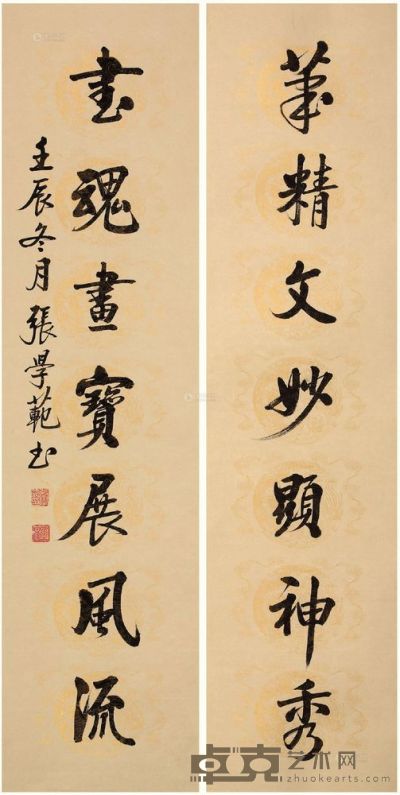 筆精文妙顯神秀
書魂畫寶展風流
壬辰冬月張學範書
卓克艺术网
zhuokearts.com